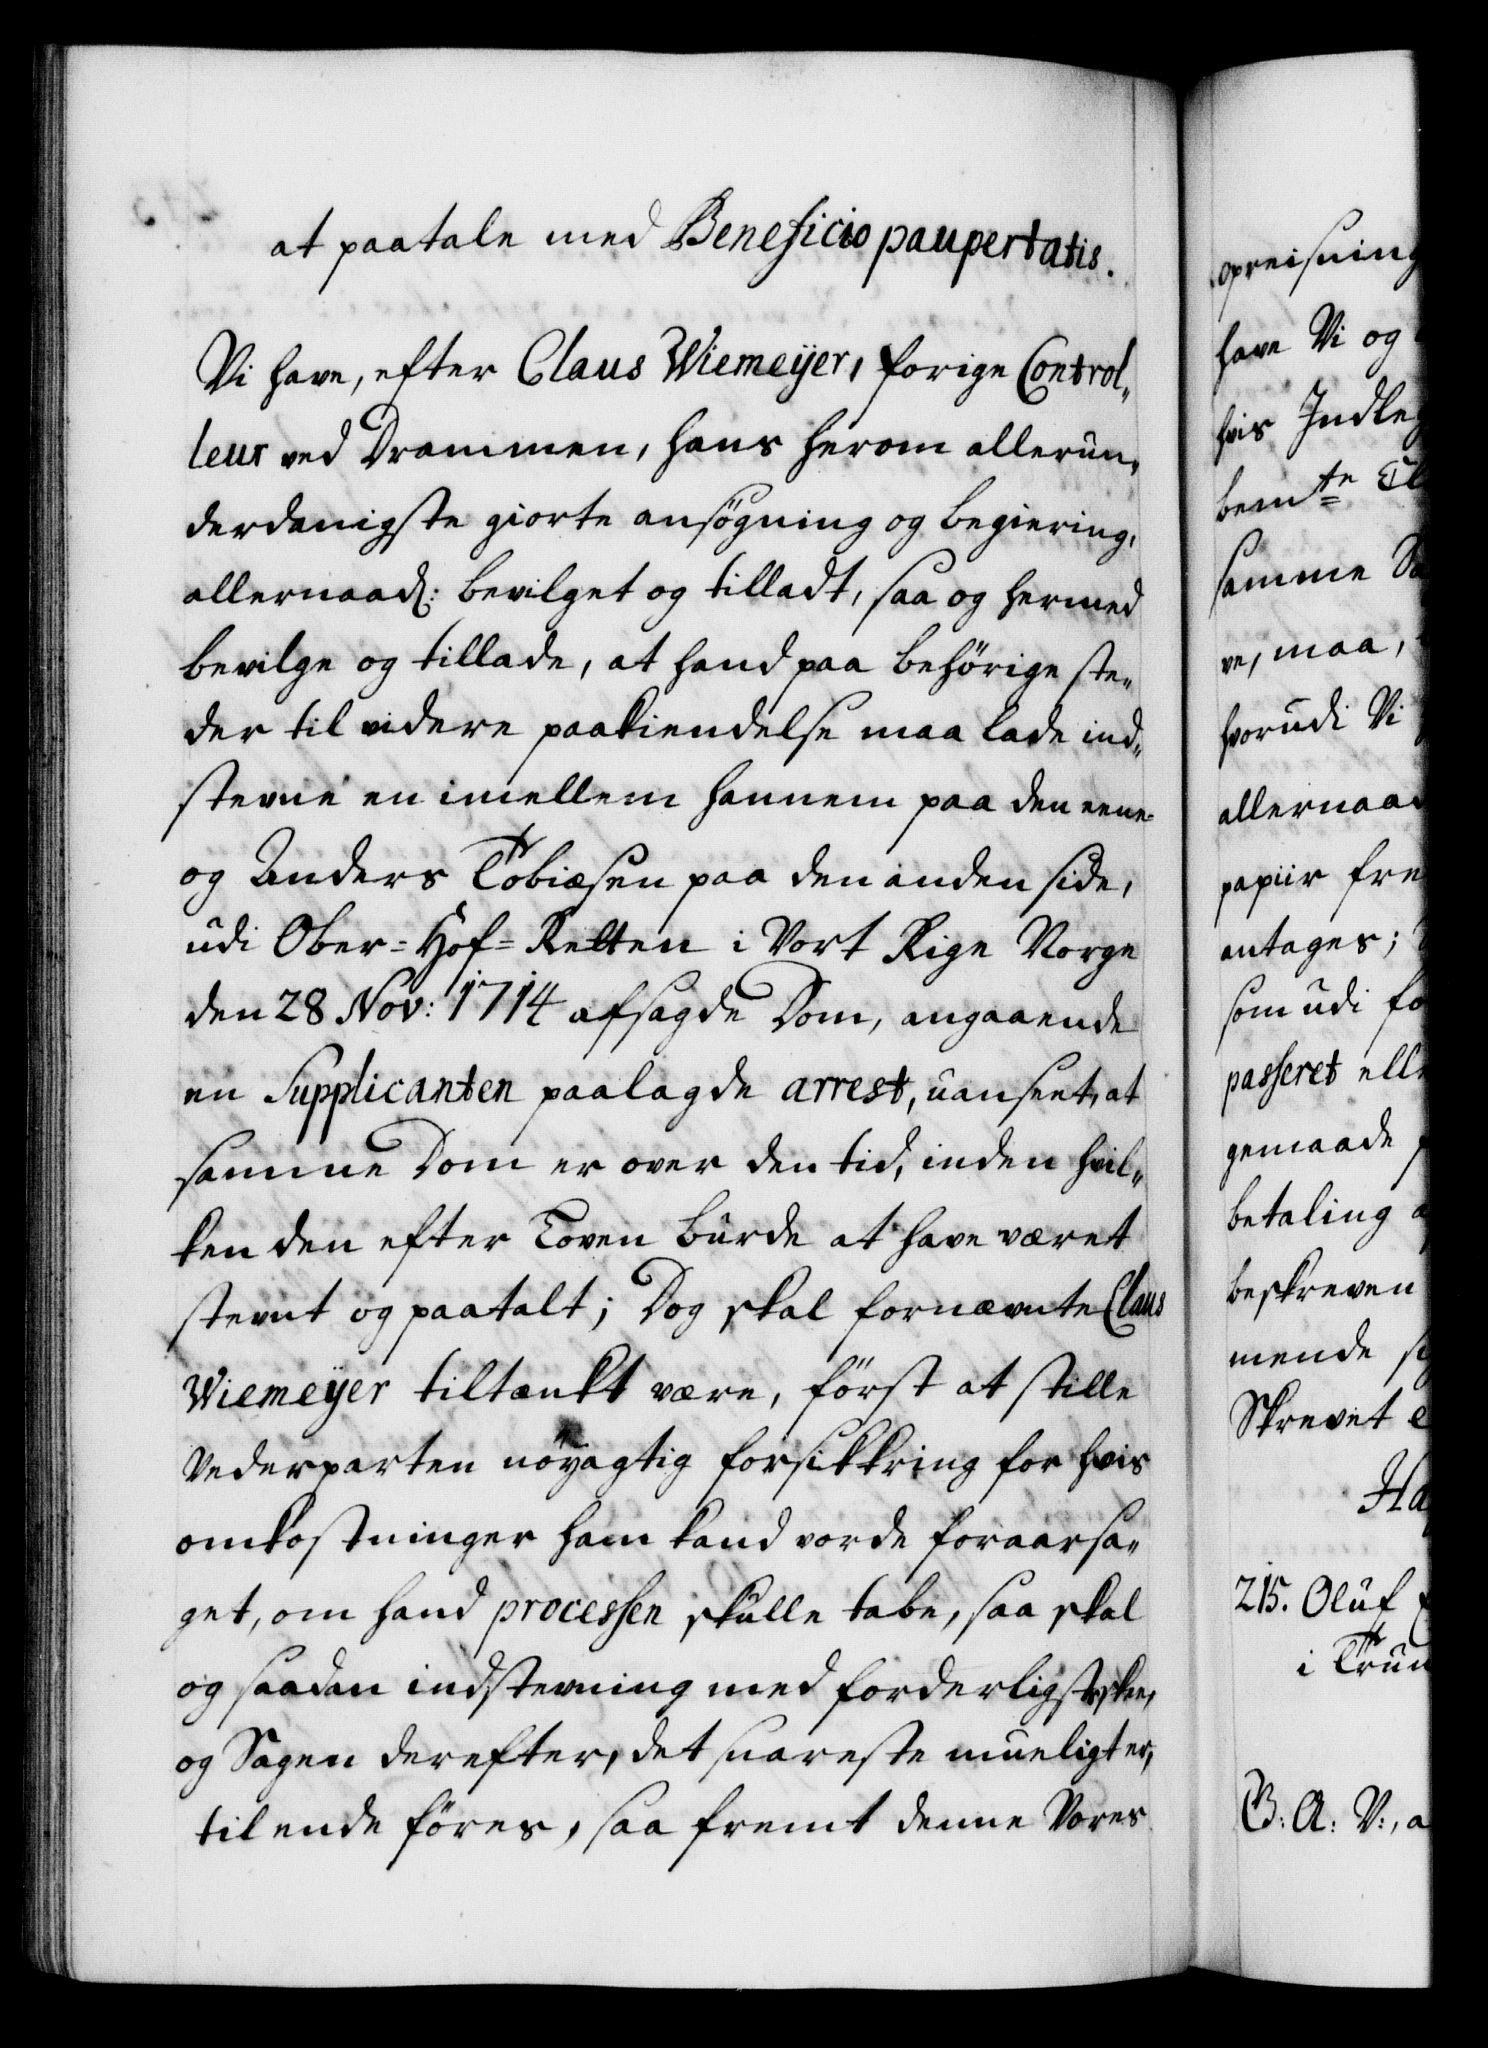 at paatale med Beneficio paupertatis.
Vi have, efter Claus Wiemeÿer, forige Control„
leur ved Drammen, hans herom allerun„
derdanigste giorte ansøgning og begiering,
allernaad: bevilget og tilladt, saa og hermed
bevilge og tillade, at hand paa behørige ste„
der til videre paakiendelse maa lade ind„
stevne en imellem hannem paa den eene-
og Anders Tobiæsen paa den anden side,
udi Ober-Hof-Retten i Vort Rige Norge
den 28 Nov: 1714 afsagde Dom, angaaende
en Supplicanten paalagde arrest, uanseet, at
samme Dom er over den tid, inden hvil„
ken den efter Loven burde at have været
stevnt og paatalt; Dog skal fornævnte Claus
Wiemeÿer tiltænkt være, først at stille
Vederparten nøyagtig forsikkring for hvis
omkostninger ham kand vorde foraarsa„
get, om hand processen skulle tabe, saa skal
og saadan indstevning med forderligst skee,
og Sagen derefter, det snareste mueligt er,
til ende føres, saa fremt denne Vores
opreisning
have Vi og
hvis Indleg
bemte Cl
samme Sa
ve, maa,
hvorudi Vi
allernaad
papiir fre
antages;
som udi fo
passeret elle
gemaade
betaling
beskreven
mende si
Skrevet
Ha
215. Oluf
i Trun
G: A: V:, a